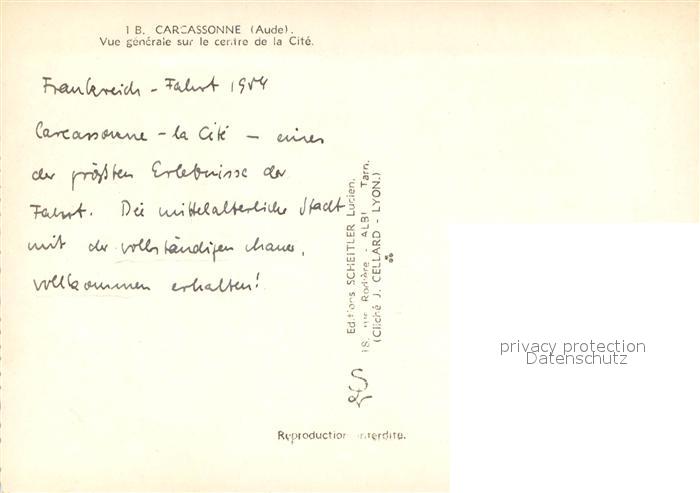 1 B. CARCASSONNE (Aude).
Vue générale sur le centre de la Cité.
Frankreich - Fahrt 1954
Carcassonne - la Cité - eines
der größten Erlebnisse der
Fahrt. Die mittelalterliche Stadt
mit der vollständigen Mauer,
vollkommen erhalten!
Editions SCHEITLER Lucien.
18, rue Rodière - ALBI Tarn.
(Cliché J. CELLARD - LYON.)
Reproduction interdite.
privacy protection
Datenschutz